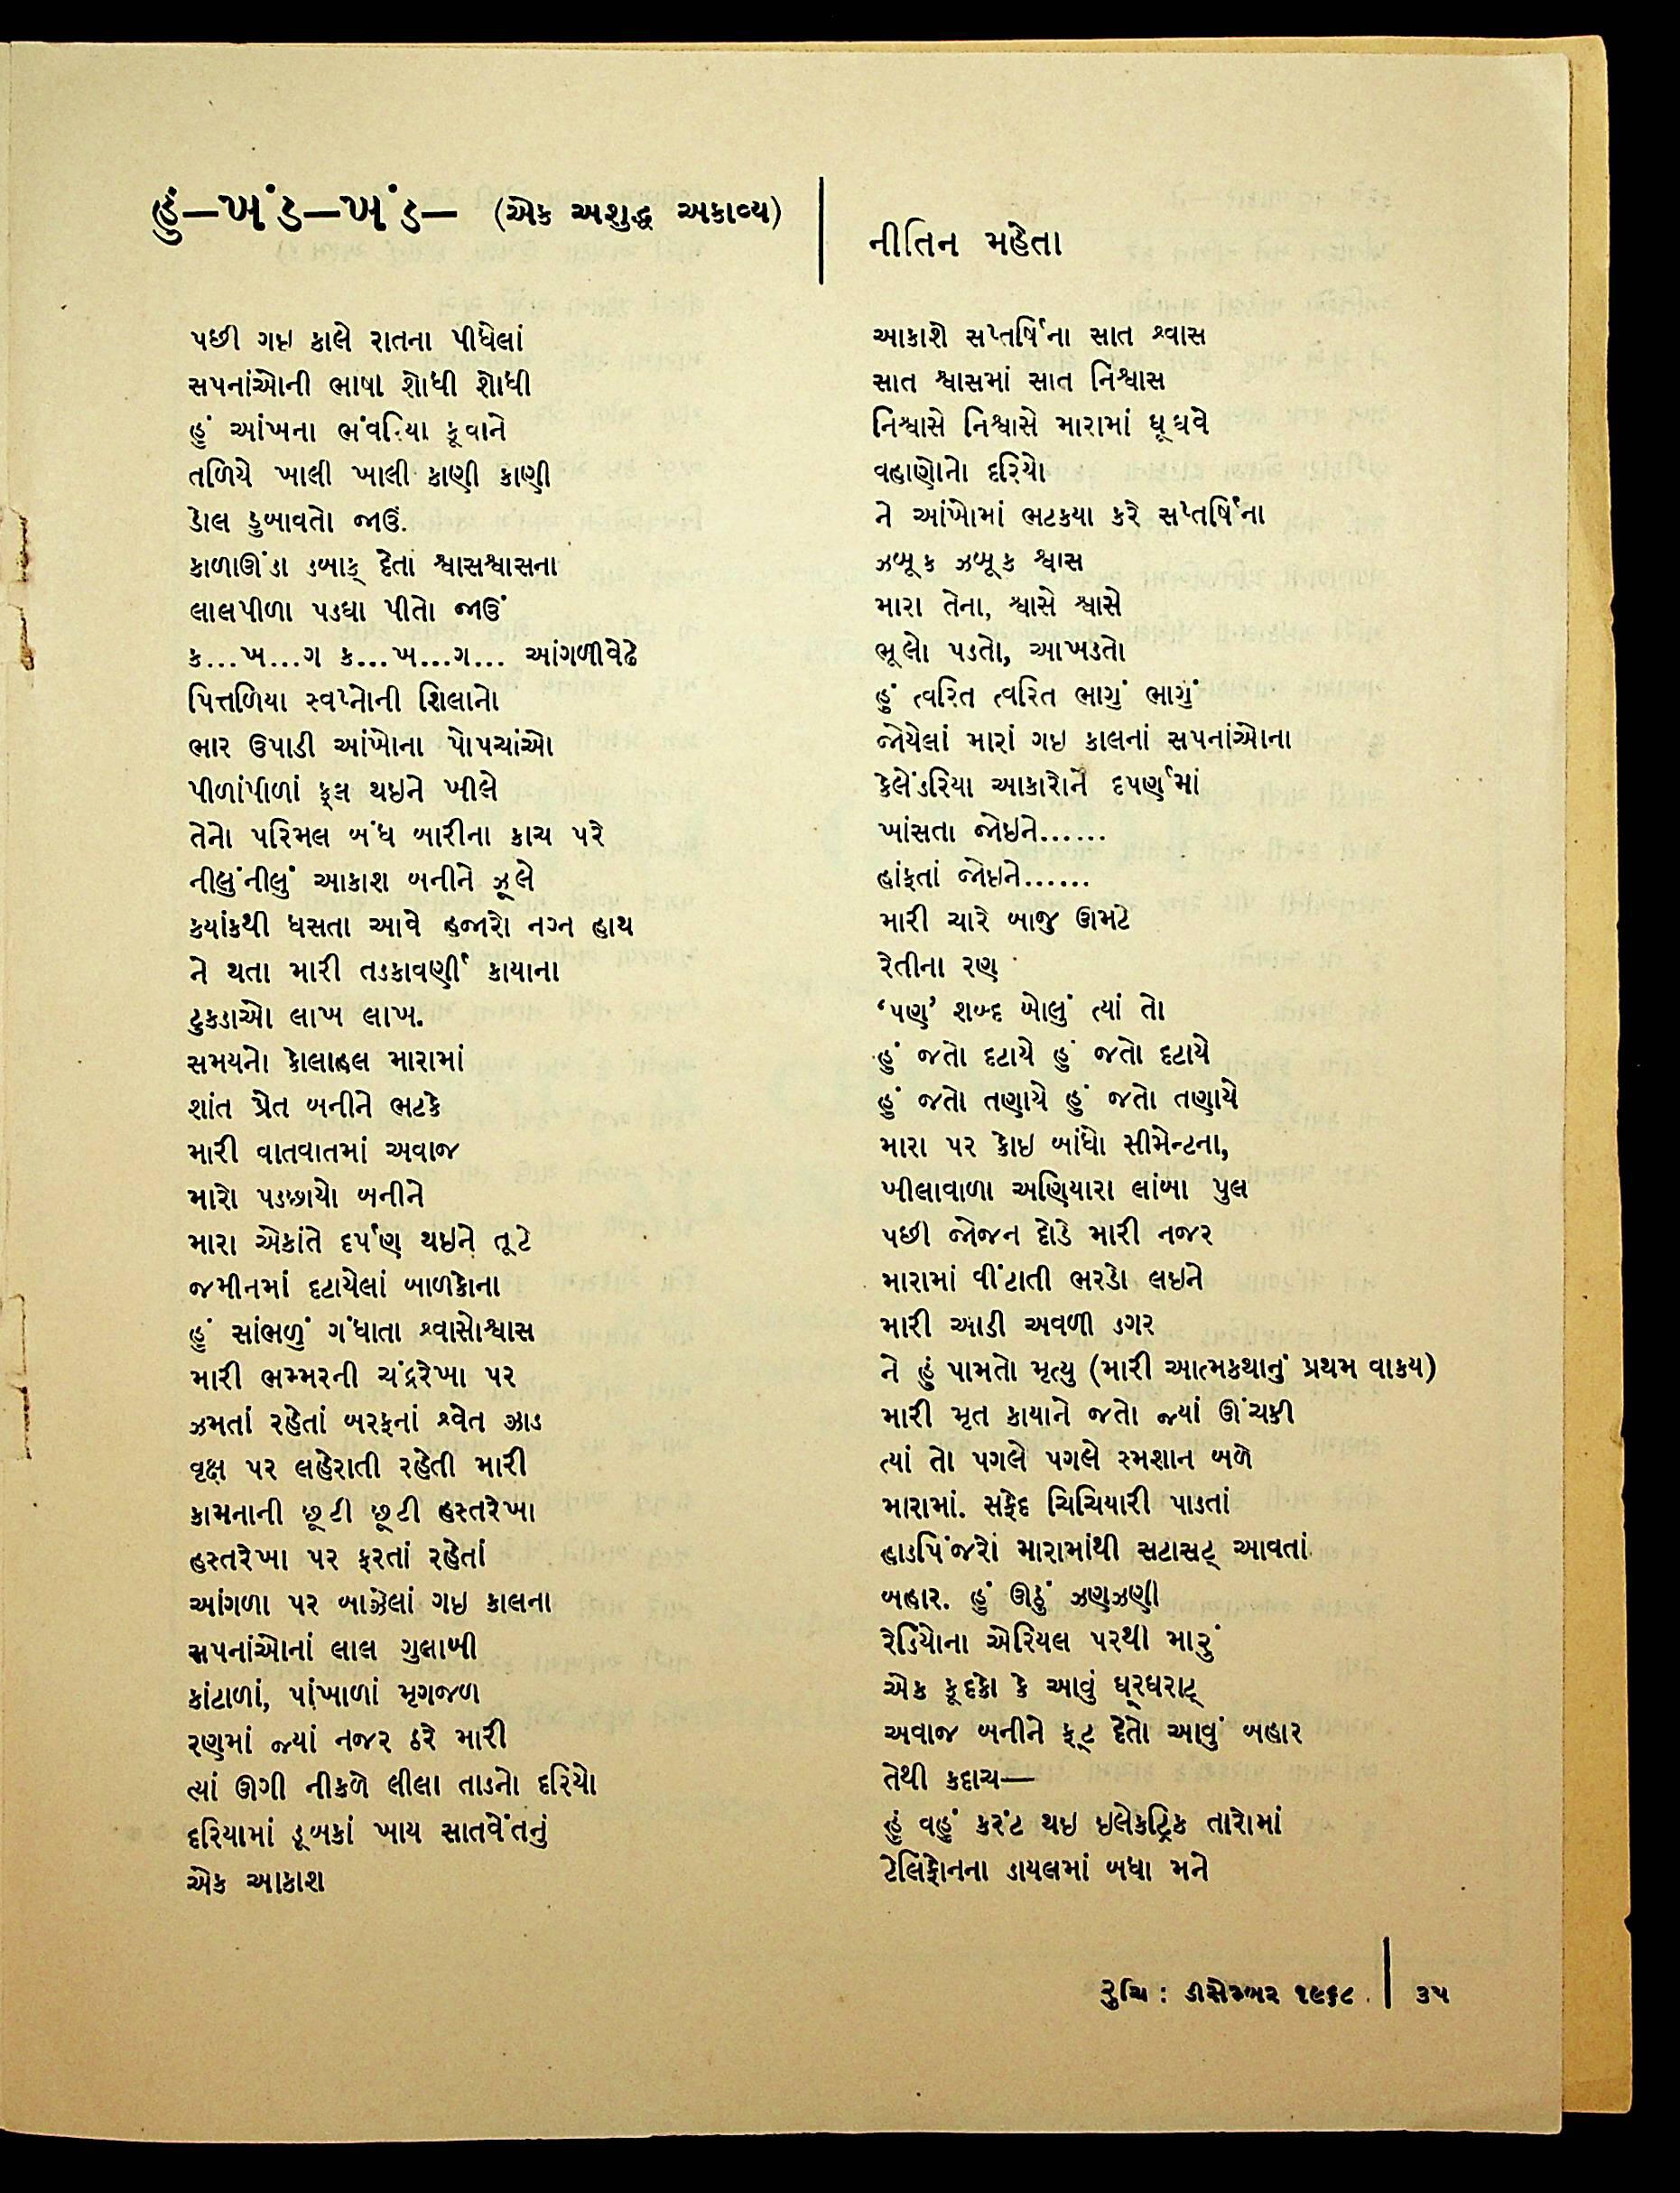 હું—ખંડ—ખંડ— (એક અશુદ્ધ અકાવ્ય)
નીતિન મહેતા
પછી ગઇ કાલે રાતના પીધેલાં
સપનાંઓની ભાષા શોધી શોધી
હું આંખના ભંવરિયા કૂવાને
તળિયે ખાલી ખાલી કાણી કાણી
ડોલ ડુબાવતો જાઉં.
કાળાઊંડા ડબાક્ દેતા શ્વાસશ્વાસના
લાલપીળા પડઘા પીતો જાઉં
ક...ખ...ગ ક...ખ...ગ... આંગળીવેઢે
પિત્તળિયા સ્વપ્નોની શિલાનો
ભાર ઉપાડી આંખોના પોપચાંઓ
પીળાંપીળાં ફૂલ થઇને ખીલે
તેનો પરિમલ બંધ બારીના કાચ પરે
નીલુંનીલું આકાશ બનીને ઝૂલે
કયાંકથી ધસતા આવે હજારો નગ્ન હાથ
ને થતા મારી તડકાવર્ણી કાયાના
ટુકડાઓ લાખ લાખ.
સમયનો કોલાહલ મારામાં
શાંત પ્રેત બનીને ભટકે
મારી વાતવાતમાં અવાજ
મારો પડછાયો બનીને
મારા એકાંતે દર્પણ થઇને તૂટે
જમીનમાં દટાયેલાં બાળકોના
હું સાંભળું ગંધાતા શ્વાસોશ્વાસ
મારી ભમ્મરની ચંદ્રરેખા પર
ઝમતાં રહેતાં બરફનાં શ્વેત ઝાડ
વૃક્ષ પર લહેરાતી રહેતી મારી
કામનાની છૂટી છૂટી હસ્તરેખા
હસ્તરેખા પર ફરતાં રહેતાં
આંગળા પર બાઝેલાં ગઇ કાલના
સપનાંઓનાં લાલ ગુલાબી
કાંટાળાં, પાંખાળાં મૃગજળ
રણમાં જ્યાં નજર ઠરે મારી
ત્યાં ઊગી નીકળે લીલા તાડનો દરિયો
દરિયામાં ડૂબકાં ખાય સાતવેંતનું
એક આકાશ
આકાશે સપ્તર્ષિના સાત શ્વાસ
સાત શ્વાસમાં સાત નિશ્વાસ
નિશ્વાસે નિશ્વાસે મારામાં ઘૂઘવે
વહાણોનો દરિયો
ને આંખોમાં ભટકયા કરે સપ્તર્ષિના
ઝબૂક ઝબૂક શ્વાસ
મારા તેના, શ્વાસે શ્વાસે
ભૂલો પડતો, આખડતો
હું ત્વરિત ત્વરિત ભાગું ભાગું
જોયેલાં મારાં ગઇ કાલનાં સપનાંઓના
કેલેંડરિયા આકારોને દર્પણમાં
ખાંસતા જોઇને......
હાંફતાં જોઇને......
મારી ચારે બાજુ ઊમટે
રેતીના રણ
‘પણ’ શબ્દ બોલું ત્યાં તો
હું જતો દટાયે હું જતો દટાયે
હું જતો તણાયે હું જતો તણાયે
મારા પર કોઇ બાંધો સીમેન્ટના,
ખીલાવાળા અણિયારા લાંબા પુલ
પછી જોજન દોડે મારી નજર
મારામાં વીંટાતી ભરડો લઇને
મારી આડી અવળી ડગર
ને હું પામતો મૃત્યુ (મારી આત્મકથાનું પ્રથમ વાકય)
મારી મૃત કાયાને જતો જ્યાં ઊંચકી
ત્યાં તો પગલે પગલે સ્મશાન બળે
મારામાં. સફેદ ચિચિયારી પાડતાં
હાડપિંજરો મારામાંથી સટાસટ્ આવતાં
બહાર. હું ઊઠું ઝણઝણી
રેડિયોના એરિયલ પરથી મારું
એક કૂદકો કે આવું ઘરઘરાટ્
અવાજ બનીને ફૂટ દેતો આવું બહાર
તેથી કદાચ—
હું વહું કરંટ થઇ ઇલેકટ્રિક તારોમાં
ટેલિફોનના ડાયલમાં બધા મને
રુચિ : ડીસેમ્બર ૧૯૬૮ | ૩૫